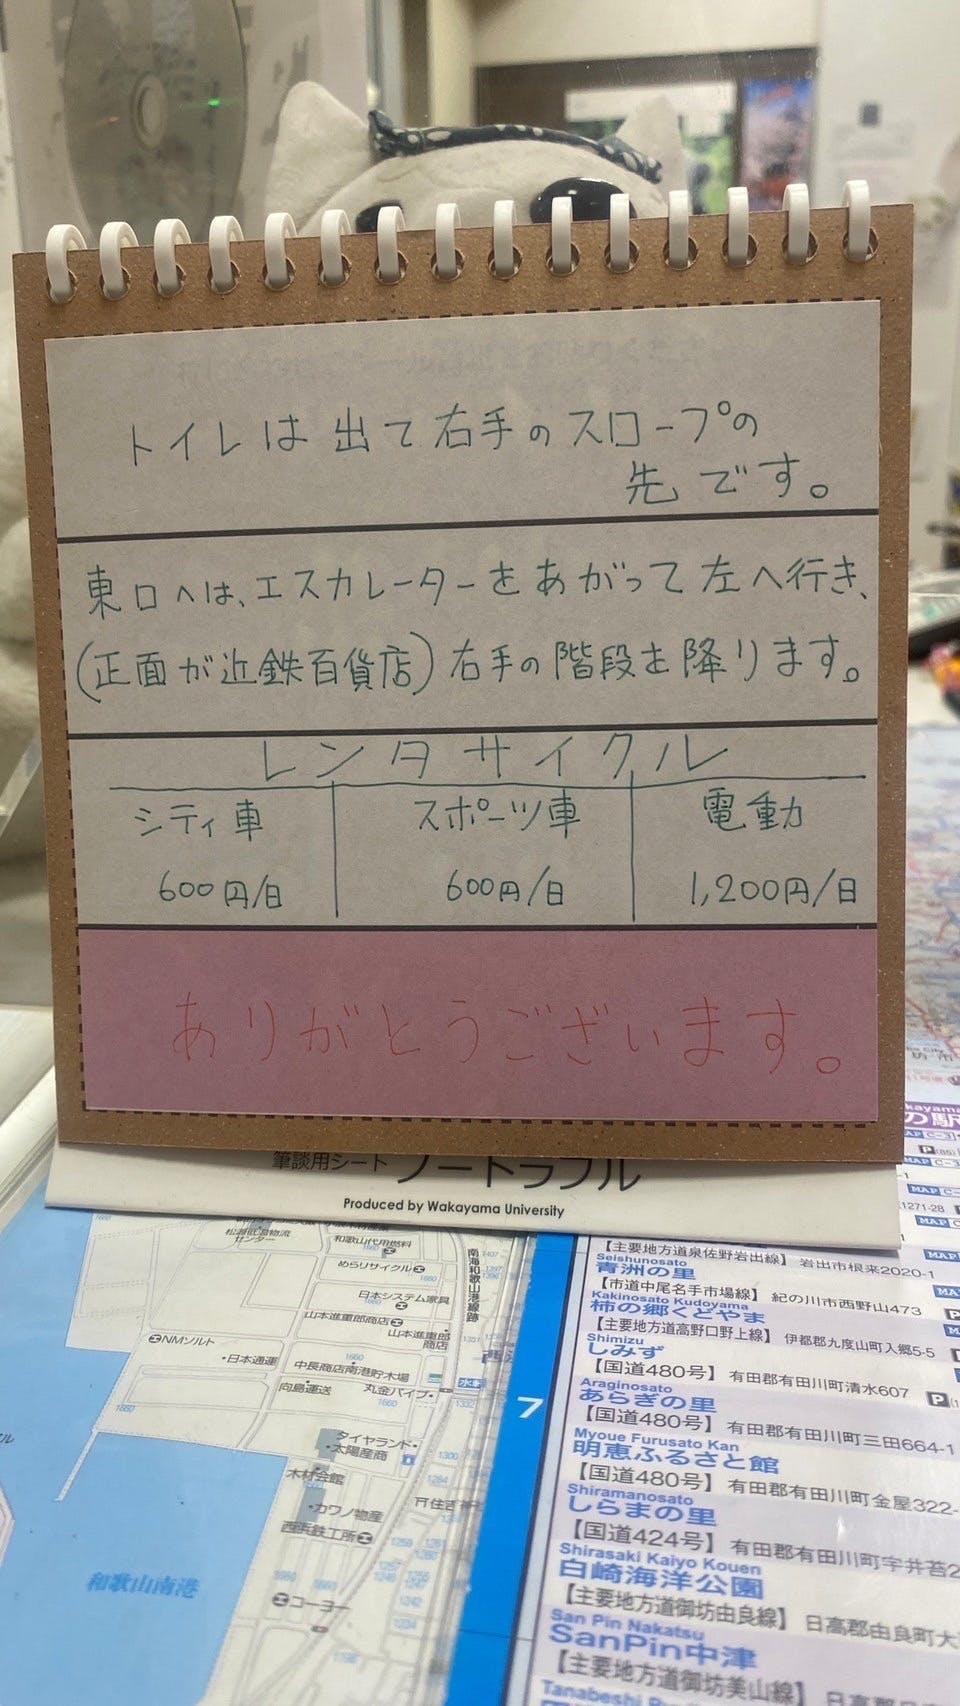 トイレは出て右手のスロープの
先です。
東口へは、エスカレーターをあがって左へ行き、
(正面が近鉄百貨店)右手の階段を降ります。
レンタサイクル
シティ車 スポーツ車 電動
600円/日 600円/日 1,200円/日
ありがとうございます。
筆談用シート ノートラブル
Produced by Wakayama University
センター
和歌山代用燃料
めらリサイクル
日本システム家具
山本進重郎商店
山本進重郎
商店
南海和歌山港線跡
NMソルト
・日本通運
中長商店南港貯木場
向島運送
丸金パイプ
タイヤランド
太陽産商
木材会館
カワノ物産
西浜鉄工所
コーヨー
和歌山南港
7
の駅
【主要地方道泉佐野岩出線】 岩出市根来2020-1
Seishunosato
青洲の里
【市道中尾名手市場線】 紀の川市西野山473
Kakinosato Kudoyama
柿の郷くどやま
【主要地方道高野口野上線】 伊都郡九度山町入郷5-5
Shimizu
しみず
【国道480号】 有田郡有田川町清水607
Araginosato
あらぎの里
【国道480号】 有田郡有田川町三田664-1
Myoue Furusato Kan
明恵ふるさと館
【国道480号】 有田郡有田川町金屋322-
Shiramanosato
しらまの里
【国道424号】 有田郡有田川町宇井苔2
Shirasaki Kaiyo Kouen
白崎海洋公園
【主要地方道御坊由良線】 日高郡由良町大
San Pin Nakatsu
SanPin中津
【主要地方道御坊美山線】 日高郡
Tanabeshi